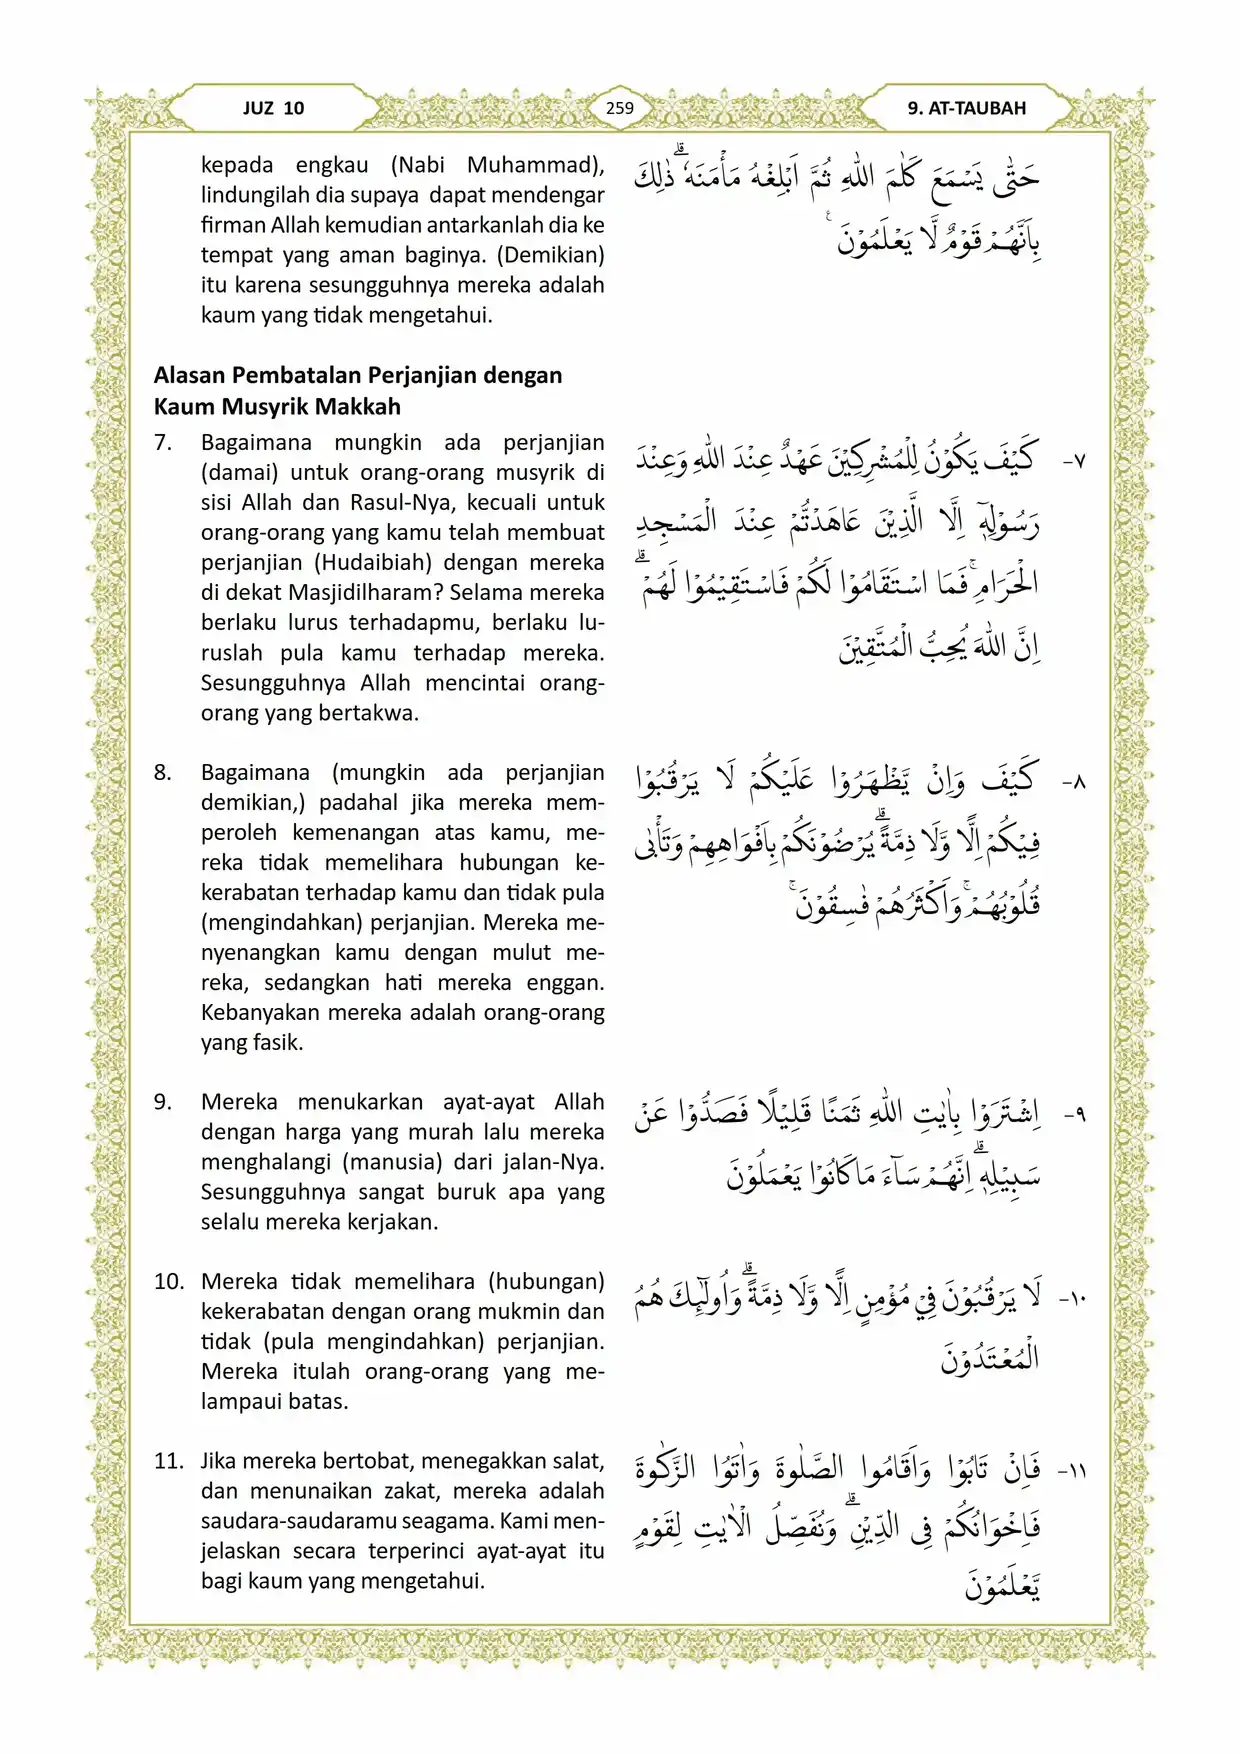 JUZ 10
259
9. AT-TAUBAH
kepada engkau (Nabi Muhammad),
lindungilah dia supaya dapat mendengar
firman Allah kemudian antarkanlah dia ke
tempat yang aman baginya. (Demikian)
itu karena sesungguhnya mereka adalah
kaum yang tidak mengetahui.
حَتّٰى يَسْمَعَ كَلٰمَ اللّٰهِ ثُمَّ اَبْلِغْهُ مَأْمَنَهٗ ۗذٰلِكَ
بِاَنَّهُمْ قَوْمٌ لَّا يَعْلَمُوْنَ ࣖ
Alasan Pembatalan Perjanjian dengan
Kaum Musyrik Makkah
7. Bagaimana mungkin ada perjanjian
(damai) untuk orang-orang musyrik di
sisi Allah dan Rasul-Nya, kecuali untuk
orang-orang yang kamu telah membuat
perjanjian (Hudaibiah) dengan mereka
di dekat Masjidilharam? Selama mereka
berlaku lurus terhadapmu, berlaku lu-
ruslah pula kamu terhadap mereka.
Sesungguhnya Allah mencintai orang-
orang yang bertakwa.
٧- كَيْفَ يَكُوْنُ لِلْمُشْرِكِيْنَ عَهْدٌ عِنْدَ اللّٰهِ وَعِنْدَ
رَسُوْلِهٖٓ اِلَّا الَّذِيْنَ عَاهَدْتُّمْ عِنْدَ الْمَسْجِدِ
الْحَرَامِۚ فَمَا اسْتَقَامُوْا لَكُمْ فَاسْتَقِيْمُوْا لَهُمْ ۗ
اِنَّ اللّٰهَ يُحِبُّ الْمُتَّقِيْنَ
8. Bagaimana (mungkin ada perjanjian
demikian,) padahal jika mereka mem-
peroleh kemenangan atas kamu, me-
reka tidak memelihara hubungan ke-
kerabatan terhadap kamu dan tidak pula
(mengindahkan) perjanjian. Mereka me-
nyenangkan kamu dengan mulut me-
reka, sedangkan hati mereka enggan.
Kebanyakan mereka adalah orang-orang
yang fasik.
٨- كَيْفَ وَاِنْ يَّظْهَرُوْا عَلَيْكُمْ لَا يَرْقُبُوْا
فِيْكُمْ اِلًّا وَّلَا ذِمَّةً ۗيُرْضُوْنَكُمْ بِاَفْوَاهِهِمْ وَتَأْبٰى
قُلُوْبُهُمْۚ وَاَكْثَرُهُمْ فٰسِقُوْنَۚ
9. Mereka menukarkan ayat-ayat Allah
dengan harga yang murah lalu mereka
menghalangi (manusia) dari jalan-Nya.
Sesungguhnya sangat buruk apa yang
selalu mereka kerjakan.
٩- اِشْتَرَوْا بِاٰيٰتِ اللّٰهِ ثَمَنًا قَلِيْلًا فَصَدُّوْا عَنْ
سَبِيْلِهٖۗ اِنَّهُمْ سَاۤءَ مَا كَانُوْا يَعْمَلُوْنَ
10. Mereka tidak memelihara (hubungan)
kekerabatan dengan orang mukmin dan
tidak (pula mengindahkan) perjanjian.
Mereka itulah orang-orang yang me-
lampaui batas.
١٠- لَا يَرْقُبُوْنَ فِيْ مُؤْمِنٍ اِلًّا وَّلَا ذِمَّةً ۗوَاُولٰۤىِٕكَ هُمُ
الْمُعْتَدُوْنَ
11. Jika mereka bertobat, menegakkan salat,
dan menunaikan zakat, mereka adalah
saudara-saudaramu seagama. Kami men-
jelaskan secara terperinci ayat-ayat itu
bagi kaum yang mengetahui.
١١- فَاِنْ تَابُوْا وَاَقَامُوا الصَّلٰوةَ وَاٰتَوُا الزَّكٰوةَ
فَاِخْوَانُكُمْ فِى الدِّيْنِ ۗوَنُفَصِّلُ الْاٰيٰتِ لِقَوْمٍ
يَّعْلَمُوْنَ